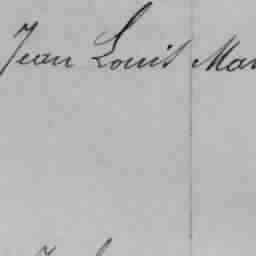 Jean Louis Mar